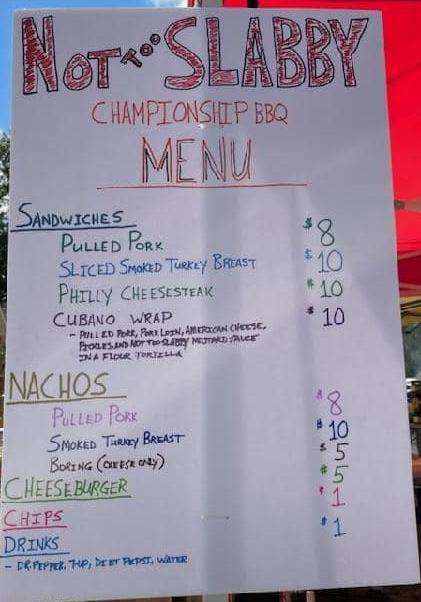 NOT TOO SLABBY
CHAMPIONSHIP BBQ
MENU
SANDWICHES
PULLED PORK $8
SLICED SMOKED TURKEY BREAST $10
PHILLY CHEESESTEAK $10
CUBANO WRAP $10
- PULLED PORK, PORK LOIN, AMERICAN CHEESE,
PICKLES AND NOT TOO SLABBY MUSTARD SAUCE
IN A FLOUR TORTILLA
NACHOS
PULLED PORK $8
SMOKED TURKEY BREAST $10
BORING (CHEESE ONLY) $5
CHEESEBURGER $5
CHIPS $1
DRINKS $1
- DR. PEPPER, 7-UP, DIET PEPSI, WATER